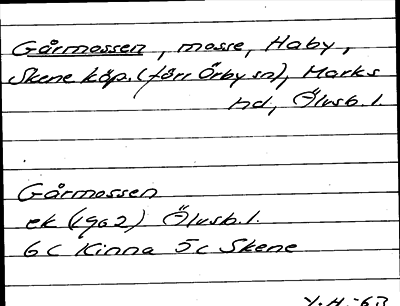 Gårmossen, mosse, Haby,
Skene köp. (förr Örby sn), Marks
hd, Älvsb. l.
Gårmossen
ek (1962) Älvsb. l.
6c Kinna 5c Skene
Y.H.-63